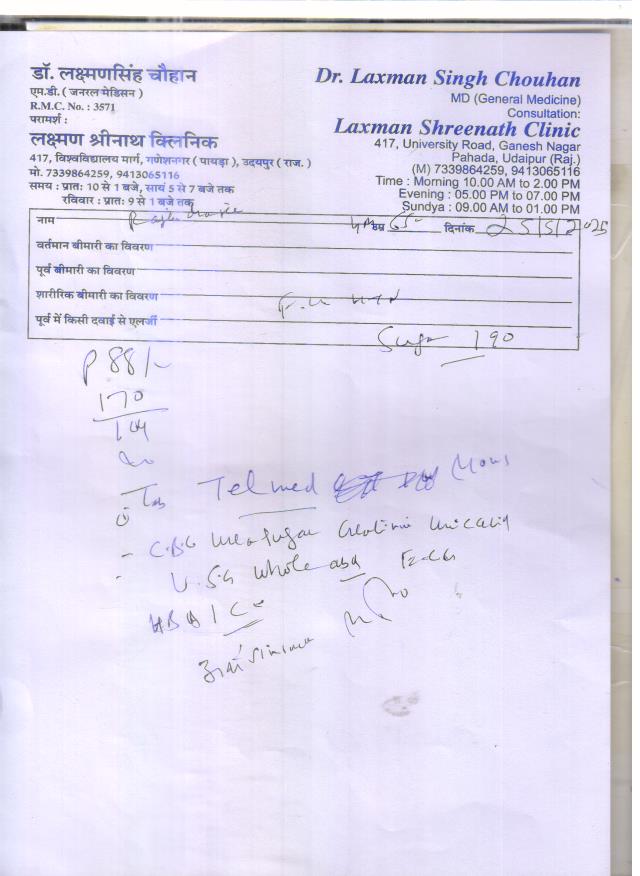 डॉ. लक्ष्मणसिंह चौहान
एम.डी. ( जनरल मेडिसन )
R.M.C. No. : 3571
परामर्श :
लक्ष्मण श्रीनाथ क्लिनिक
417, विश्वविद्यालय मार्ग, गणेशनगर ( पायड़ा ), उदयपुर ( राज. )
मो. 7339864259, 9413065116
समय : प्रातः 10 से 1 बजे, सायं 5 से 7 बजे तक
रविवार : प्रातः 9 से 1 बजे तक
Dr. Laxman Singh Chouhan
MD (General Medicine)
Consultation:
Laxman Shreenath Clinic
417, University Road, Ganesh Nagar
Pahada, Udaipur (Raj.)
(M) 7339864259, 9413065116
Time : Morning 10.00 AM to 2.00 PM
Evening : 05.00 PM to 07.00 PM
Sundya : 09.00 AM to 01.00 PM
नाम उम्र 65 दिनांक 25/5/2025
वर्तमान बीमारी का विवरण
पूर्व बीमारी का विवरण
शारीरिक बीमारी का विवरण
पूर्व में किसी दवाई से एलर्जी
Sugar 190
P 88/-
170
104
Tab Telmed
C.B.C Urea Sugar Creatinine Uric acid
U.S.G whole abd E.C.G
HBA1C